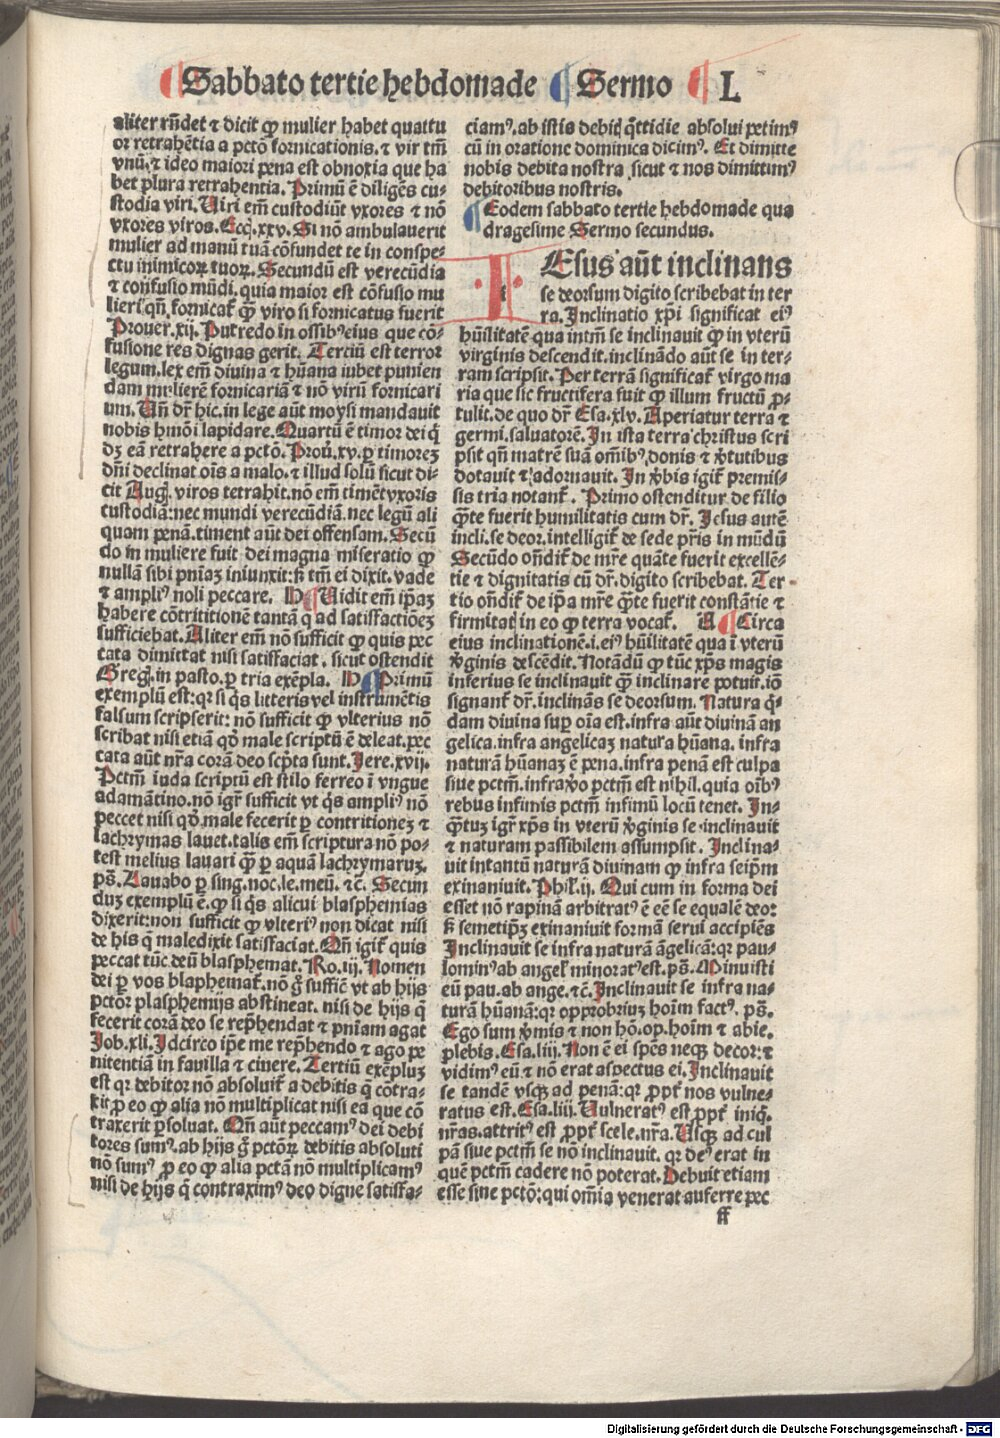 Sabbato tertie hebdomade Sermo L
aliter rñdet ⁊ dicit ꝙ mulier habet quattu
or retrahẽtia a pctõ fornicationis. ⁊ vir tm̃
vnũ. ⁊ ideo maiori pena est obnoxia que ha
bet plura retrahentia. Primũ ẽ diligẽs cu-
stodia viri. Uiri em̃ custodiũt vxores ⁊ nõ
vxores viros. Eccj̃. xxv. Si nõ ambulauerit
mulier ad manũ tuã cõfundet te in conspe-
ctu inimicoꝝ tuoꝝ. Secundũ est verecũdia
⁊ confusio mũdi. quia maior est cõfusio mu
lieri qñ fornicat̃ ꝙ̃ viro si fornicatus fuerit
Prouer. xij. Putredo in ossibꝰ eius que cõ-
fusione res dignas gerit. Terciũ est terror
legum. lex em̃ diuina ⁊ hũana iubet punien
dam mulierẽ fornicariã ⁊ nõ virũ fornicari
um. Uñ dr̃ hic. in lege aũt moysi mandauit
nobis hmõi lapidare. Quartũ ẽ timor dei q̃
dꝫ eã retrahere a pctõ. Proũ. xv. ꝑ timoreꝫ
dñi declinat oĩs a malo. ⁊ illud solũ sicut di-
cit Aug. viros retrahit. nõ em̃ timẽt vxoris
custodiã: nec mundi verecũdiã. nec legũ ali
quam penã. timent aũt dei offensam. Secũ
do in muliere fuit dei magna miseratio ꝙ
nullã sibi pniaꝫ iniunxit: ſꝫ tm̃ ei dixit. vade
⁊ ampliꝰ noli peccare. H Uidit em̃ ip̃aꝫ
habere cõtrititionẽ tantã q̃ ad satisfactiõeꝫ
sufficiebat. Aliter em̃ nõ sufficit ꝙ quis pec
cata dimittat nisi satisfaciat. sicut ostendit
Greg. in pasto. ꝑ tria exẽpla. H Primũ
exemplũ est: qꝛ si q̃s litteris vel instrumẽtis
falsum scripserit: nõ sufficit ꝙ vlterius nõ
scribat nisi etiã qď male scriptũ ẽ deleat. pec
cata aũt nr̃a corã deo scp̃ta sunt. Jere. xvij.
Pctm̃ iuda scriptũ est stilo ferreo ĩ vngue
adamãtino. nõ igr̃ sufficit vt q̃s ampliꝰ nõ
peccet nisi qď male fecerit ꝑ contritioneꝫ ⁊
lachrymas lauet. talis em̃ scriptura nõ po-
test melius lauari ꝙ̃ ꝑ aquã lachrymaruꝫ.
pš. Lauabo ꝑ sing. noc. le. meũ. ⁊c̃. Secun
duꝫ exemplũ ẽ. ꝙ si q̃s alicui blasphemias
dixerit: non sufficit ꝙ vlteriꝰ non dicat nisi
de his q̃ maledixit satisfaciat. Qñ igit̃ quis
peccat tũc deũ blasphemat. Ro. iij. Nomen
dei ꝑ vos blaphemat̃. nõ g̃ suffic̃ vt ab hijs
pctõꝝ plasphemijs abstineat. nisi de hijs q̃
fecerit corã deo se rep̃hendat ⁊ pniam agat
Job. xli. Idcirco ip̃e me rep̃hendo ⁊ ago pe
nitentiã in fauilla ⁊ cinere. Tertiũ exẽpluꝫ
est qꝛ debitor nõ absoluit̃ a debitis q̃ cõtra-
xit ꝑ eo ꝙ alia nõ multiplicat nisi ea que cõ
traxerit ꝑsoluat. Qñ aũt peccamꝰ dei debi
tores sumꝰ. ab hijs g̃ pctõꝝ debitis absoluti
nõ sumꝰ ꝑ eo ꝙ alia pctã nõ multiplicamꝰ
nisi de hijs q̃ contraximꝰ deo digne satisfa-
ciamꝰ. ab istis debitꝭ q̃ttidie absolui petimꝰ
cũ in oratione dominica dicimꝰ. Et dimitte
nobis debita nostra sicut ⁊ nos dimittimꝰ
debitoribus nostris.
Eodem sabbato tertie hebdomade qua
dragesime Sermo secundus.
IEsus aũt inclinans
se deorsum digito scribebat in ter
ra. Inclinatio xp̃i significat eiꝰ
hũilitatẽ qua intm̃ se inclinauit ꝙ in vterũ
virginis descendit. inclinãdo aũt se in ter-
ram scripsit. Per terrã significat̃ virgo ma
ria que sic fructifera fuit ꝙ illum fructũ ꝓ-
tulit. de quo dr̃ Esa. xlv. Aperiatur terra ⁊
germi. saluatorẽ. In ista terra christus scri
psit qñ matrẽ suã om̃ibꝰ donis ⁊ v̓tutibus
dotauit ⁊ adornauit. In v̓bis igit̃ premis-
sis tria notant̃. Primo ostenditur de filio
q̃te fuerit humilitatis cum dr̃. Jesus autẽ
incli. se deor. intelligit̃ de sede pr̃is in mũdũ
Secũdo oñdit̃ de mr̃e quãte fuerit excellẽ-
tie ⁊ dignitatis cũ dr̃. digito scribebat. Ter-
tio oñdit̃ de ip̃a mr̃e q̃te fuerit constãtie ⁊
firmitatꝭ in eo ꝙ terra vocat̃. A Circa
eius inclinationẽ. i. eiꝰ hũilitatẽ qua ĩ vterũ
v̓ginis descẽdit. Notãdũ ꝙ tũc xp̃s magis
inferius se inclinauit ꝙ̃ inclinare potuit. iõ
signant̃ dr̃. inclinãs se deorsum. Natura q̃-
dam diuina suꝑ oĩa est. infra aũt diuinã an
gelica. infra angelicaꝫ natura hũana. infra
naturã hũanaꝫ ẽ pena. infra penã est culpa
siue pctm̃. infra v̓o pctm̃ est nihil. quia oĩbꝰ
rebus infimis pctm̃ infimũ locũ tenet. In-
q̃tuꝫ igr̃ xp̃s in vterũ v̓ginis se inclinauit
⁊ naturam passibilem assumpsit. Inclina-
uit intantũ naturã diuinam ꝙ infra seip̃m
exinaniuit. Phil. ij. Qui cum in forma dei
esset nõ rapinã arbitratꝰ ẽ eẽ se equalẽ deo:
ſꝫ semetip̃ꝫ exinaniuit formã serui accipiẽs
Inclinauit se infra naturã ãgelicã: qꝛ pau-
lominꝰ ab angel̓ minoratꝰ est. pš. Minuisti
eũ pau. ab ange. ⁊c̃. Inclinauit se infra na-
turã hũanã: qꝛ opprobriuꝫ hoĩm factꝰ. pš.
Ego sum v̓mis ⁊ non hõ. op. hoĩm ⁊ abie.
plebis. Esa. liij. Non ẽ ei spẽs neqꝫ decor: ⁊
vidimꝰ eũ ⁊ nõ erat aspectus ei. Inclinauit
se tandẽ vsqꝫ ad penã: qꝛ ꝓpt̃ nos vulne-
ratus est. Esa. liij. Uulneratꝰ est ꝓpt̃ iniq̃.
nr̃as. attritꝰ est ꝓpt̃ scele. nr̃a. Usqꝫ ad cul
pã siue pctm̃ se nõ inclinauit. qꝛ deꝰ erat in
quẽ pctm̃ cadere nõ poterat. Debuit etiam
esse sine pctõ: qui om̃ia venerat auferre pec
ff
Digitalisierung gefördert durch die Deutsche Forschungsgemeinschaft - DFG